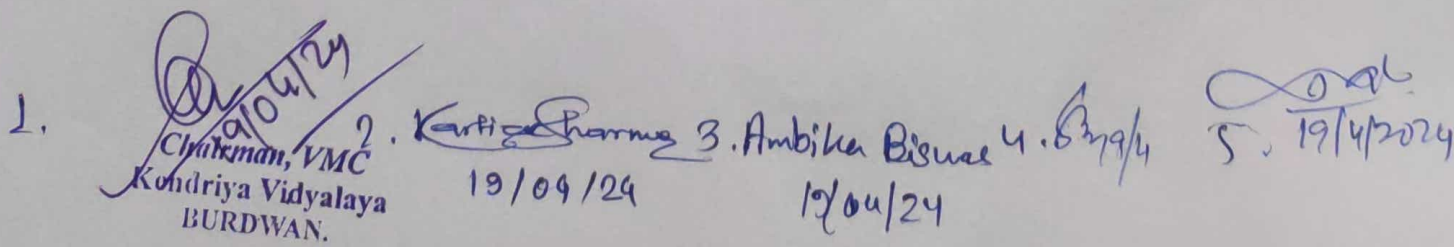 1. 19/04/24
Chairman, VMC
Kendriya Vidyalaya
BURDWAN.
2. Kartik Sharma
19/04/24
3. Ambika Biswas
19/04/24
4. 19/4
5. 19/4/2024